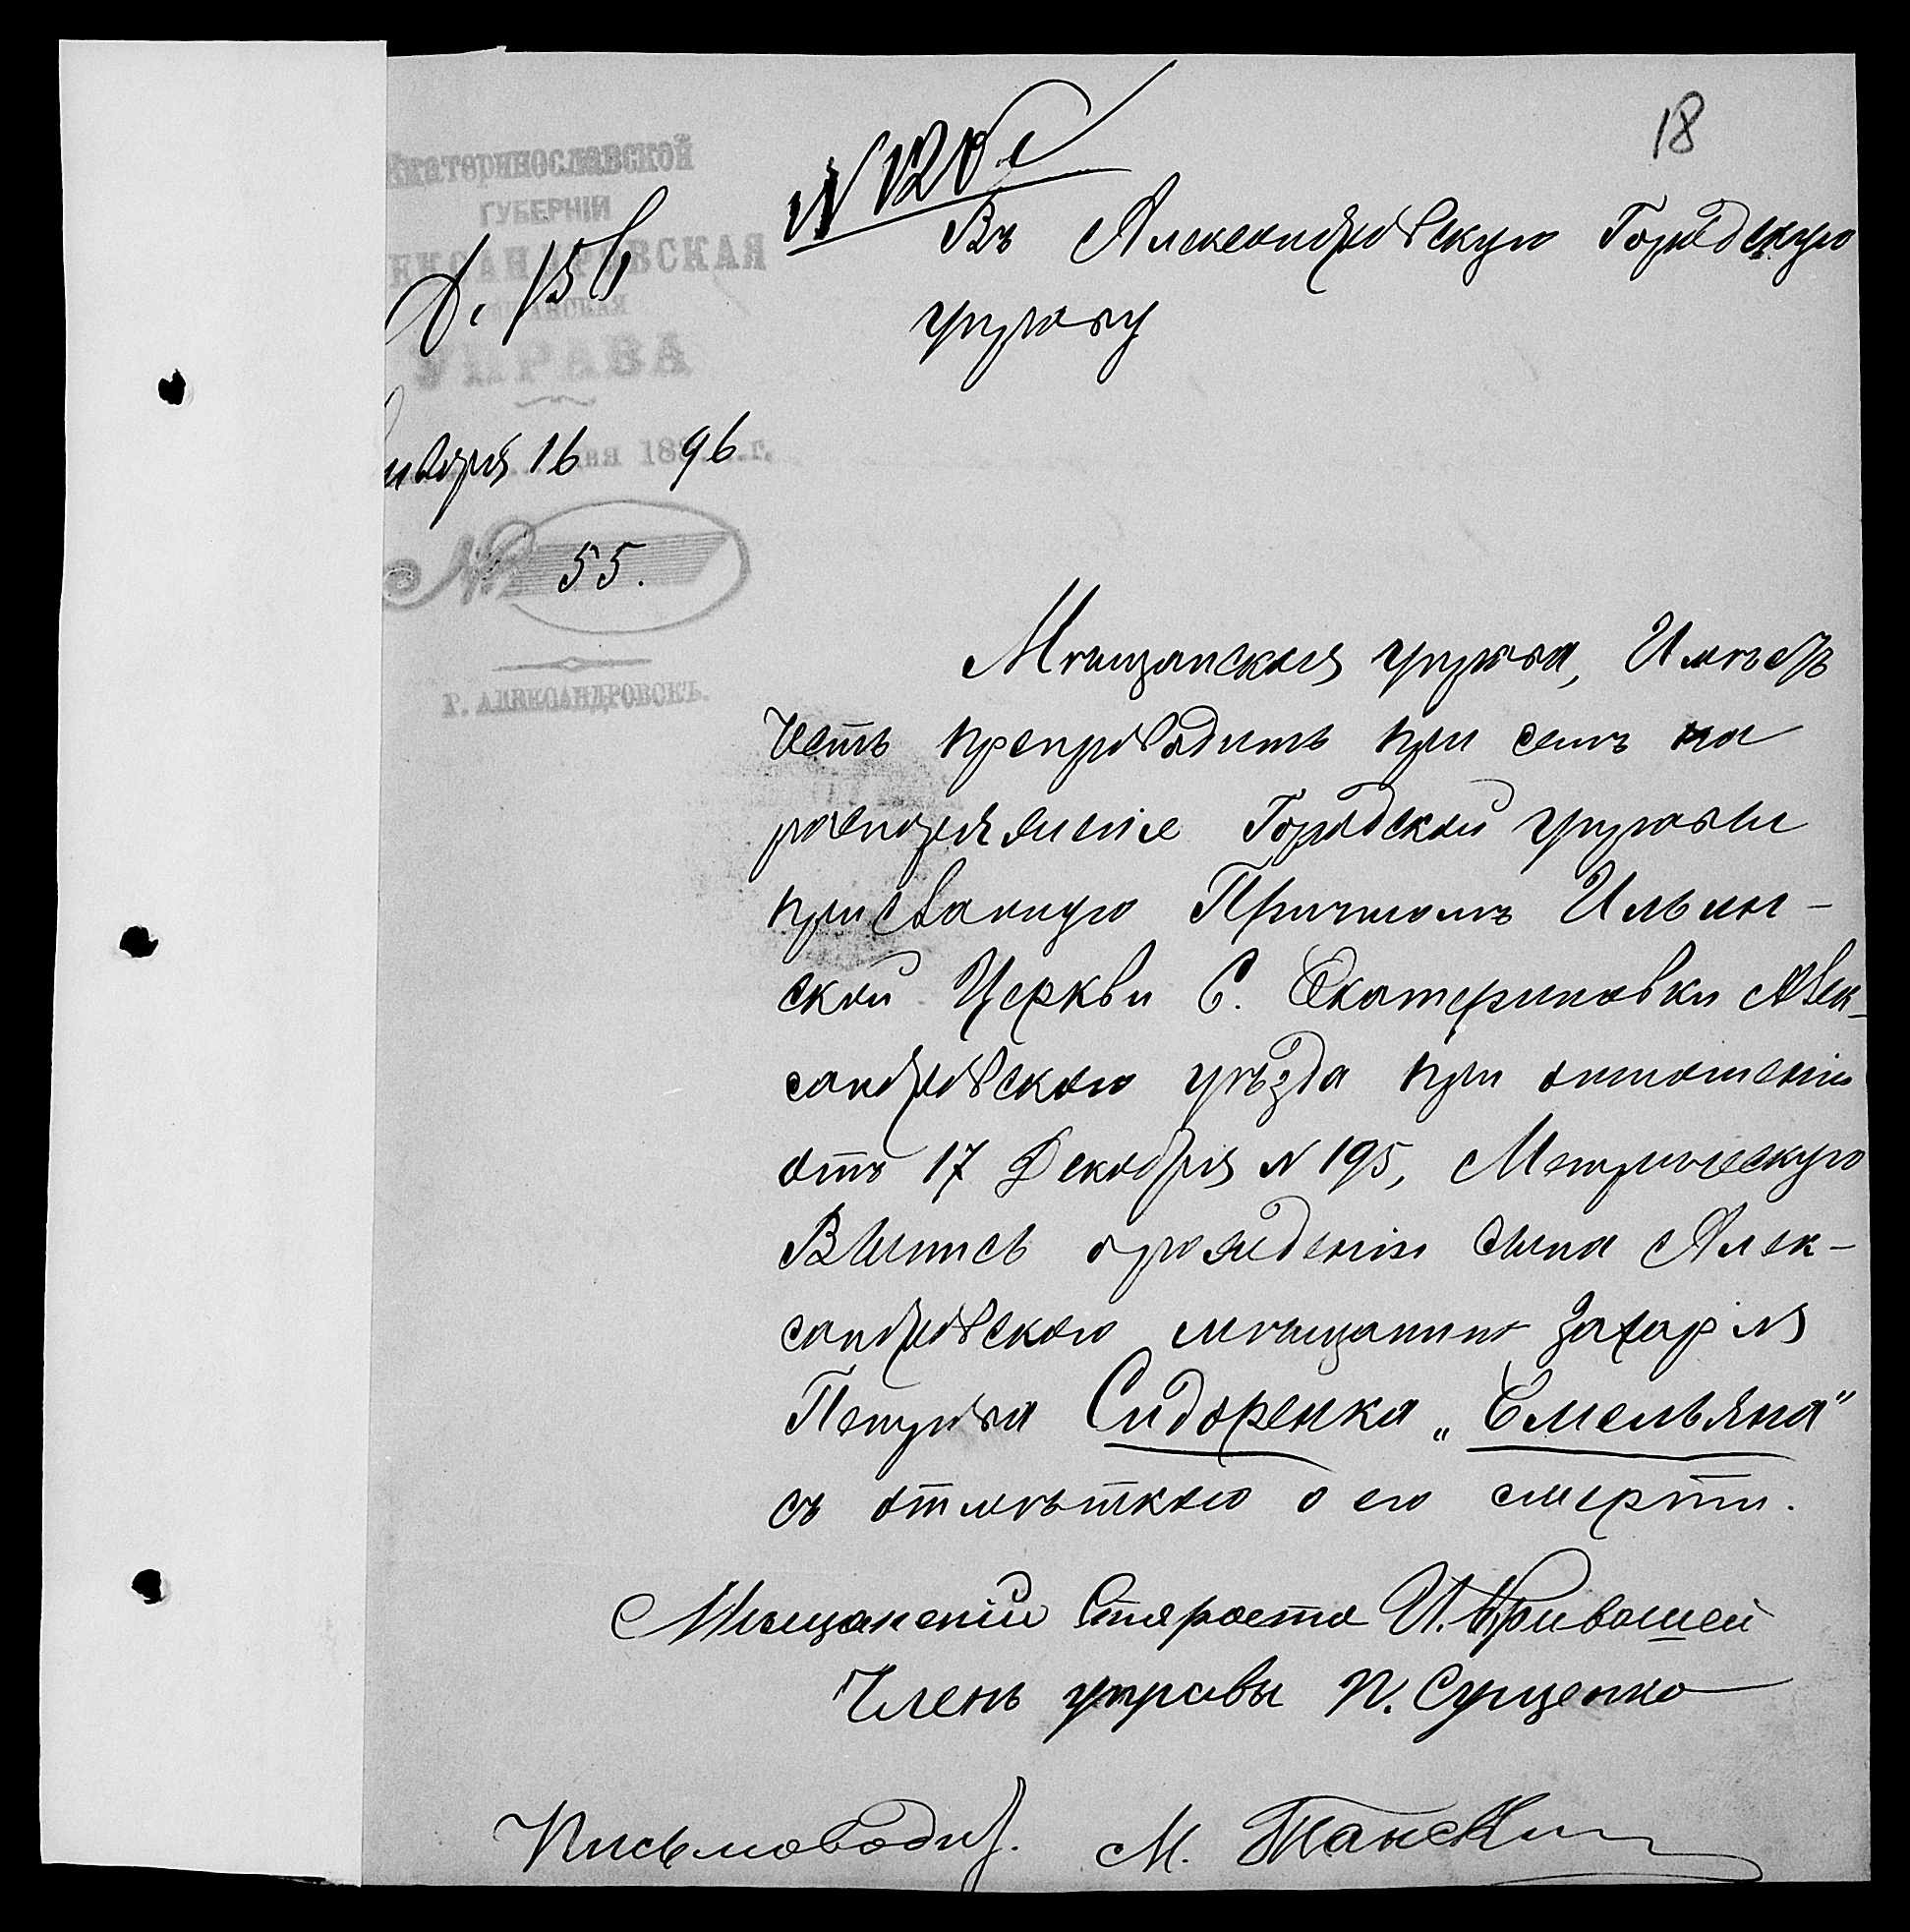 18
Екатеринославской
ГУБЕРНІИ
АЛЕКСАНДРОВСКАЯ
УПРАВА
января 16 дня 1896 г.
№ 55.
Г. АЛЕКСАНДРОВСКЪ.
Въ Александровскую Городскую
управу
Мѣщанская управа, Имѣетъ
честь препроводить при семъ на
распоряженіе Городской управы
присланную Причтомъ Ильин-
ской Церкви С. Екатериновки Алек-
сандровского уѣзда при отношеніи
отъ 17 Декабря № 195, Метрическую
Выпись о рожденіи сына Алек-
сандровского мѣщанина Захарія
Петрова Сидоренка „Емельяна"
съ отмѣткою о его смерти.
Мѣщанскій Староста И. Кривошей
Членъ управы П. Сущенко
Письмоводит. М.